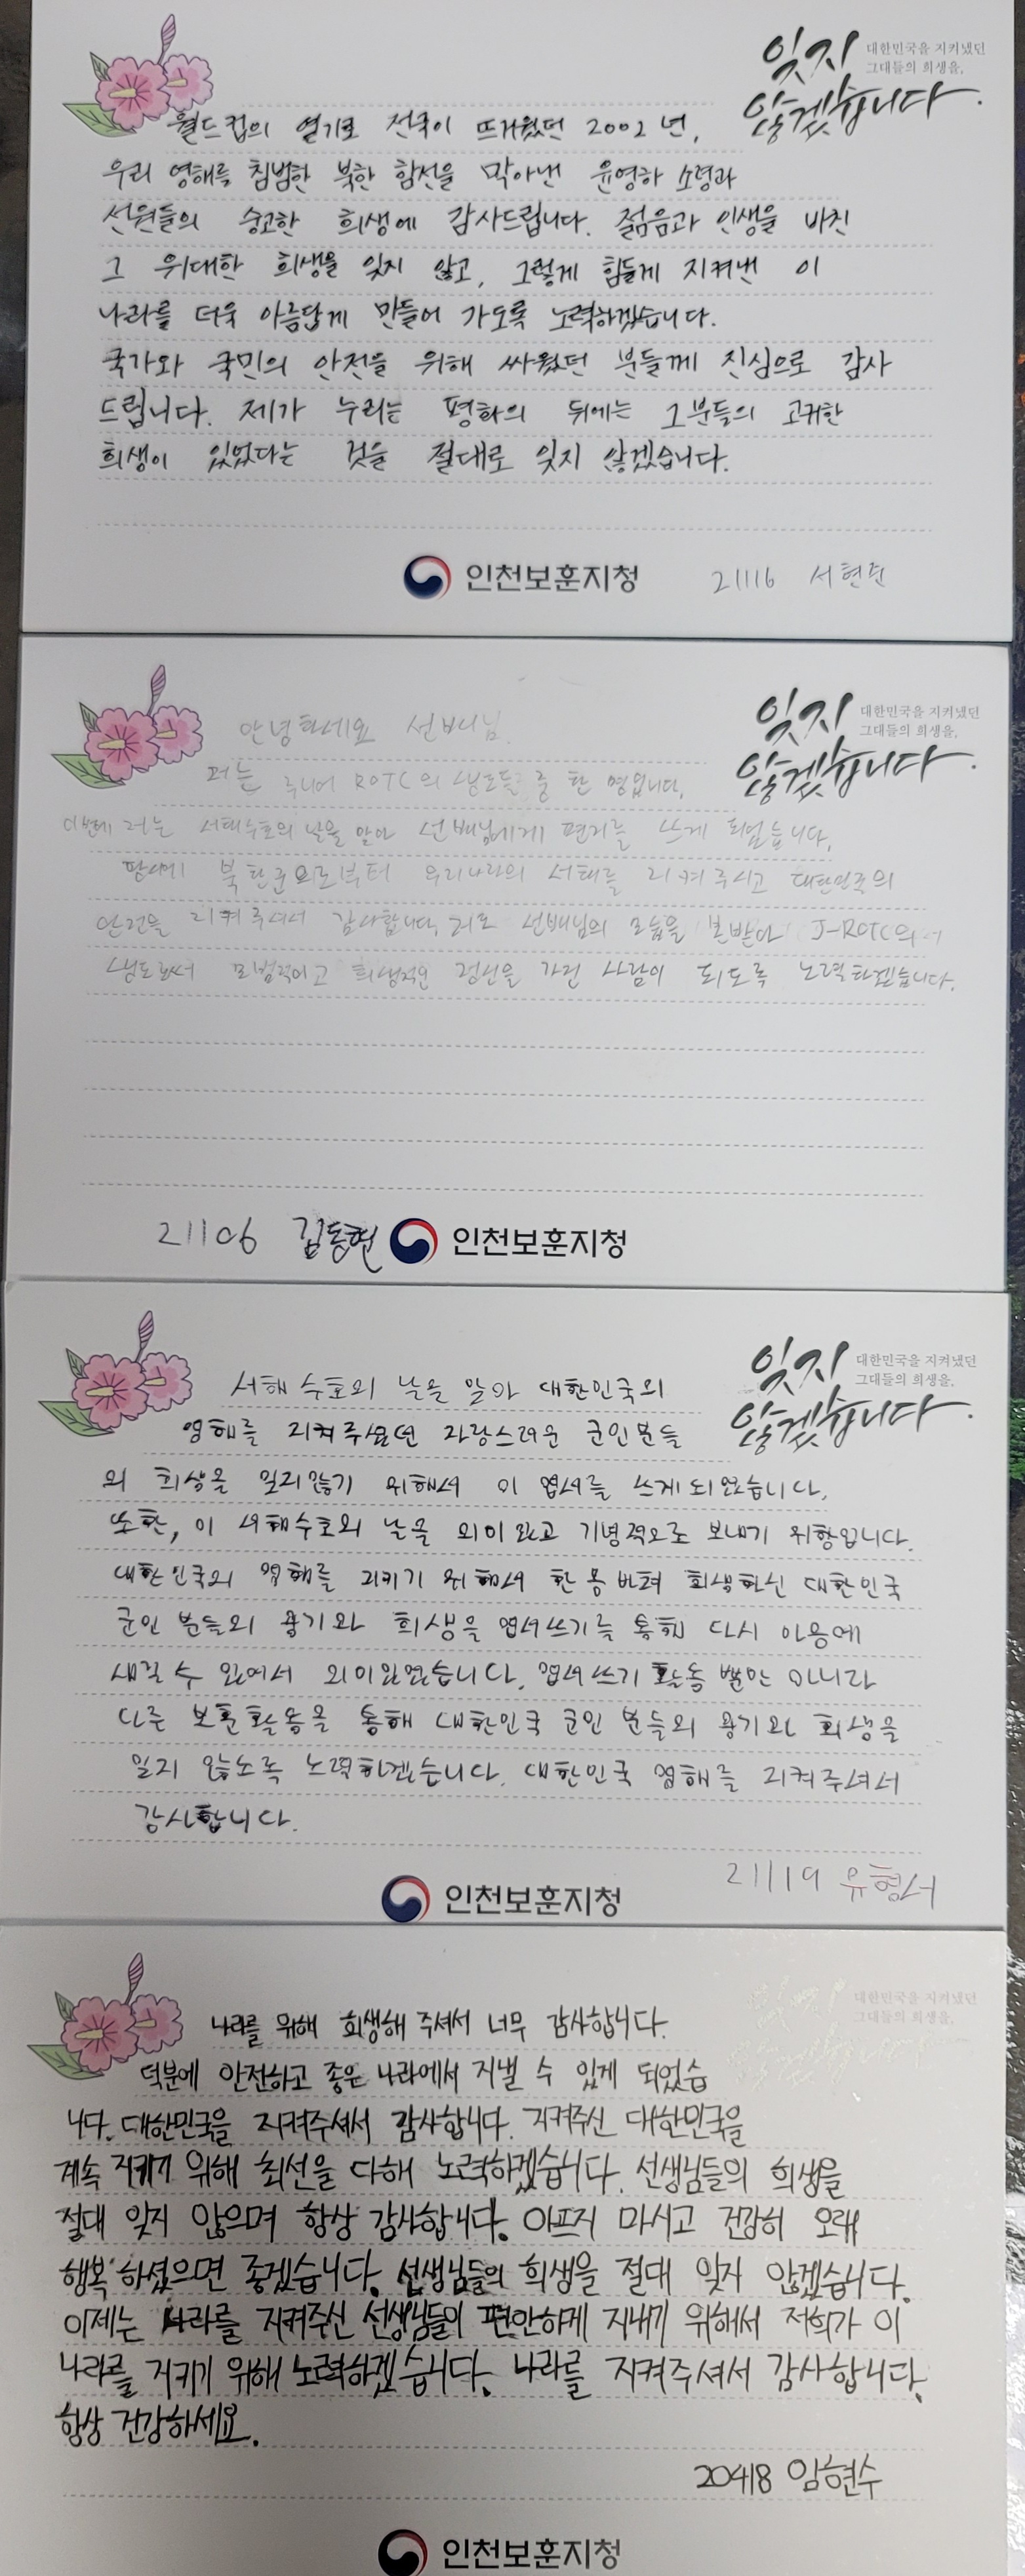 잊지
않겠습니다.
대한민국을 지켜냈던
그대들의 희생을,
월드컵의 열기로 전국이 뜨거웠던 2002년,
우리 영해를 침범한 북한 함선을 막아낸 윤영하 소령과
선원들의 숭고한 희생에 감사드립니다. 젊음과 인생을 바친
그 위대한 희생을 잊지 않고, 그렇게 힘들게 지켜낸 이
나라를 더욱 아름답게 만들어 가도록 노력하겠습니다.
국가와 국민의 안전을 위해 싸웠던 분들께 진심으로 감사
드립니다. 제가 누리는 평화의 뒤에는 그분들의 고귀한
희생이 있었다는 것을 절대로 잊지 않겠습니다.
인천보훈지청 21116 서현준
잊지
않겠습니다.
대한민국을 지켜냈던
그대들의 희생을,
안녕하세요 선배님.
저는 주니어 ROTC의 생도들 중 한 명입니다.
이번에 저는 서해수호의 날을 맞아 선배님에게 편지를 쓰게 되었습니다.
북한군으로부터 우리나라의 서해를 지켜주시고 대한민국의
안전을 지켜주셔서 감사합니다. 저도 선배님의 모습을 본받아 J-ROTC의
생도로서 모범적이고 희생적인 정신을 가진 사람이 되도록 노력하겠습니다.
21106 김동현 인천보훈지청
잊지
않겠습니다.
대한민국을 지켜냈던
그대들의 희생을,
서해수호의 날을 맞아 대한민국의
영해를 지켜주셨던 자랑스러운 군인분들
의 희생을 잊지않기 위해서 이 엽서를 쓰게되었습니다.
또한, 이 서해수호의 날을 의미있고 기념적으로 보내기 위함입니다.
대한민국의 영해를 지키기 위해서 한 몸 바쳐 희생하신 대한민국
군인 분들의 용기와 희생을 엽서쓰기를 통해 다시 마음에
새길 수 있어서 의미있었습니다. 엽서쓰기 활동 뿐만 아니라
다른 보훈활동을 통해 대한민국 군인 분들의 용기와 희생을
잊지 않도록 노력하겠습니다. 대한민국 영해를 지켜주셔서
감사합니다.
인천보훈지청 21119 유형서
대한민국을 지켜냈던
그대들의 희생을,
나라를 위해 희생해 주셔서 너무 감사합니다.
덕분에 안전하고 좋은 나라에서 지낼 수 있게 되었습
니다. 대한민국을 지켜주셔서 감사합니다. 지켜주신 대한민국을
계속 지키기 위해 최선을 다해 노력하겠습니다. 선생님들의 희생을
절대 잊지 않으며 항상 감사합니다. 아프지 마시고 건강히 오래
행복하셨으면 좋겠습니다. 선생님들의 희생을 절대 잊지 않겠습니다.
이제는 나라를 지켜주신 선생님들이 편안하게 지내기 위해서 저희가 이
나라를 지키기 위해 노력하겠습니다. 나라를 지켜주셔서 감사합니다.
항상 건강하세요.
20418 임현수
인천보훈지청